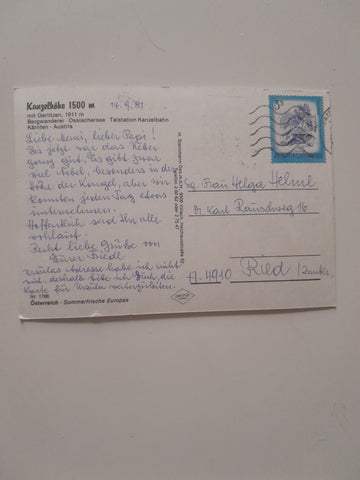 Kanzelhöhe 1500 m
14.9.81
mit Gerlitzen, 1911 m
Bergwanderer Ossiachersee Talstation Kanzelbahn
Kärnten - Austria
Liebe Memi, lieber Papi!
Bis jetzt war das Wetter
ganz gut. Es gibt zwar
viel Nebel, besonders in der
Höhe der Kanzel, aber wir
konnten jeden Tag etwas
unternehmen.
Hoffentlich seid Ihr alle
wohlauf.
Recht liebe Grüße von
Eurer Friedl
Ursulas Adresse habe ich nicht
mit, deshalb bitte ich Dich, die
Karte für Ursula weiterzuleiten.
Nr. 1796
Österreich - Sommerfrische Europas
3 S
Fam. Helga Helml
Karl Rauschweg 16
A-4910 Ried / Innkr.